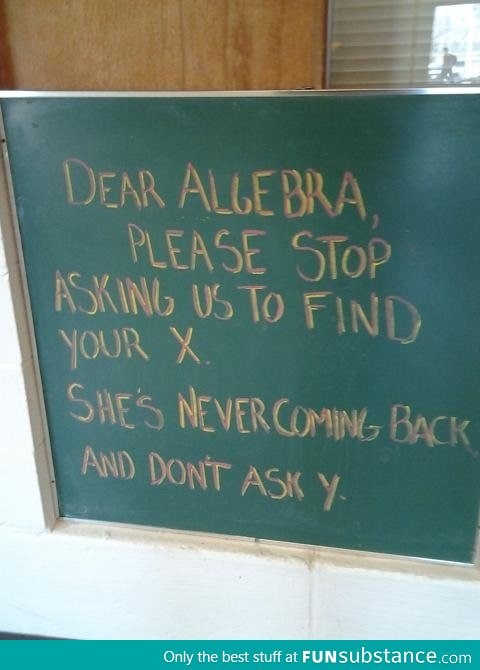 DEAR ALGEBRA,
PLEASE STOP
ASKING US TO FIND
YOUR X.
SHE'S NEVER COMING BACK,
AND DON'T ASK Y.
Only the best stuff at FUNsubstance.com